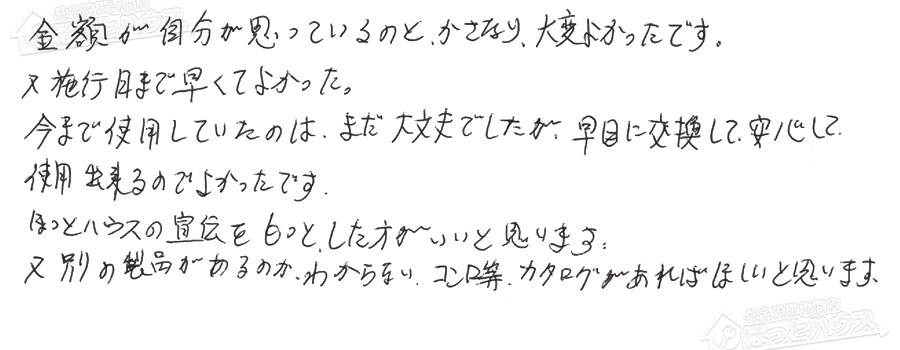 金額が自分が思っているのと、かさなり、大変よかったです。
又施行日まで早くてよかった。
今まで使用していたのは、まだ大丈夫でしたが、早目に交換して、安心して
使用出来るのでよかったです。
ほっとハウスの宣伝をもっと、した方がいいと思います。
又別の製品があるのか、わからない、コンロ等、カタログがあればほしいと思います。
住宅設備専門店
ほっとハウス